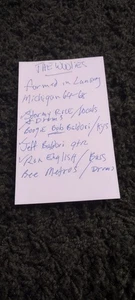 THE WOOLIES
formed in Lansing
Michigan
Stormy Rice / Vocals
& Drums
Boogie Bob Baldori / Kys
Jeff Baldori gtr
Ron English / Bass
Bee Metros / Drums